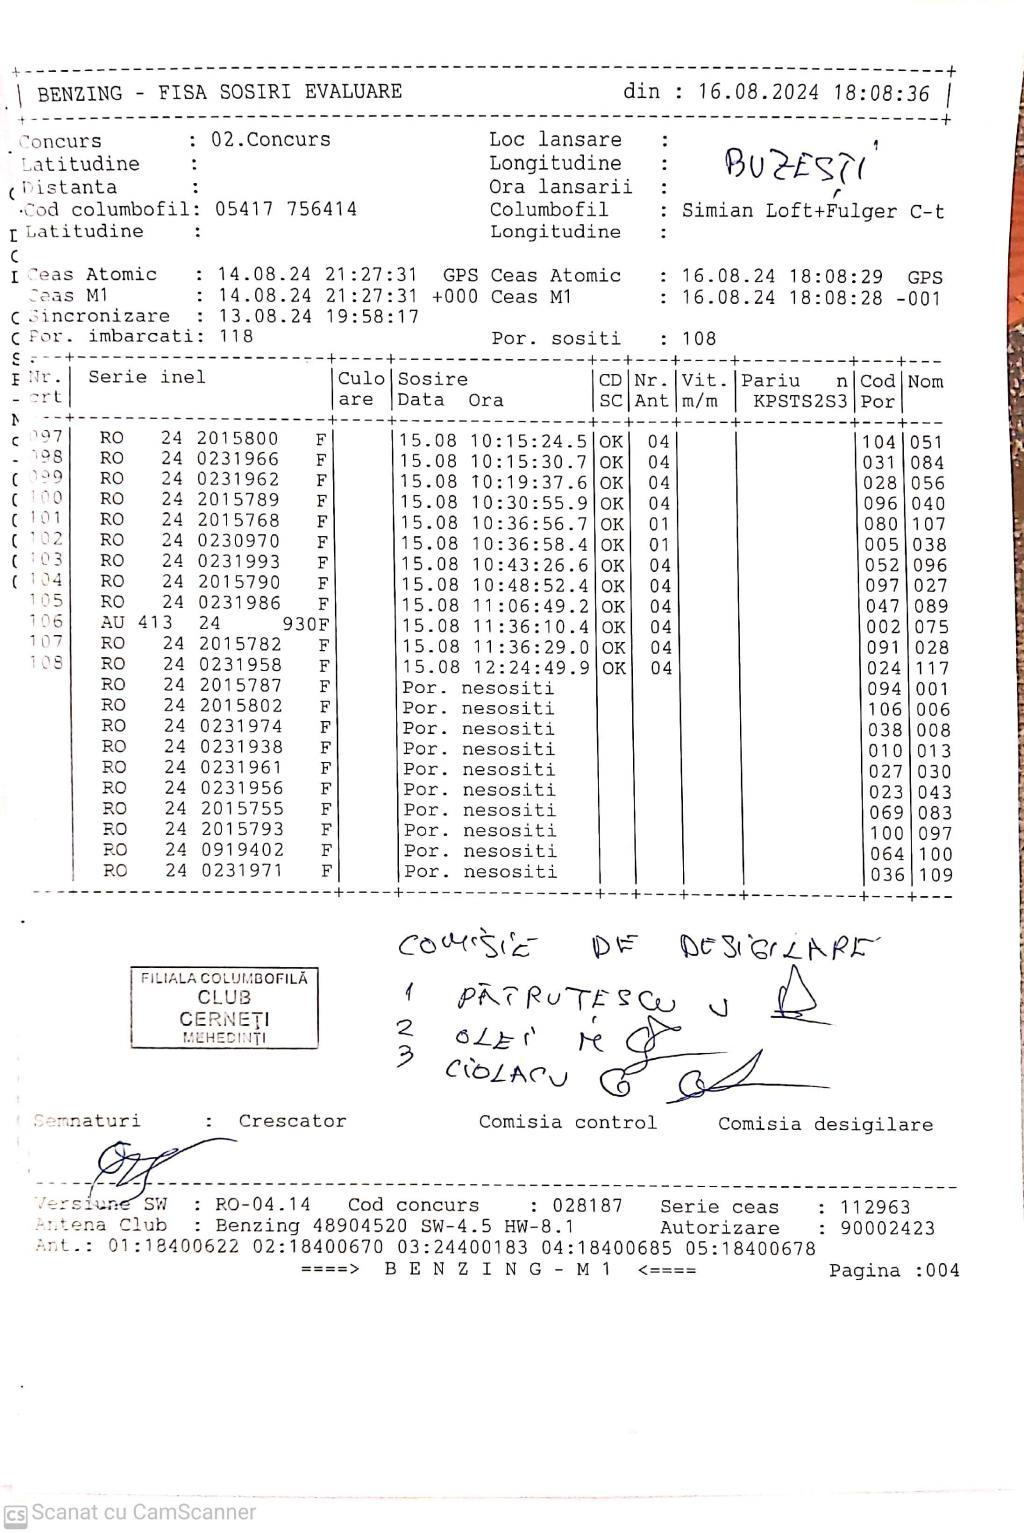 BENZING - FISA SOSIRI EVALUARE din : 16.08.2024 18:08:36
Concurs : 02.Concurs Loc lansare :
BUZEȘTI
Latitudine : Longitudine :
Distanta : Ora lansarii :
Cod columbofil: 05417 756414 Columbofil : Simian Loft+Fulger C-t
Latitudine : Longitudine :
Ceas Atomic : 14.08.24 21:27:31 GPS Ceas Atomic : 16.08.24 18:08:29 GPS
Ceas M1 : 14.08.24 21:27:31 +000 Ceas M1 : 16.08.24 18:08:28 -001
Sincronizare : 13.08.24 19:58:17
Por. imbarcati: 118 Por. sositi : 108
Nr. Serie inel Culo Sosire CD Nr. Vit. Pariu n Cod Nom
crt are Data Ora SC Ant m/m KPSTS2S3 Por
097 RO 24 2015800 F 15.08 10:15:24.5 OK 04 104 051
098 RO 24 0231966 F 15.08 10:15:30.7 OK 04 031 084
099 RO 24 0231962 F 15.08 10:19:37.6 OK 04 028 056
100 RO 24 2015789 F 15.08 10:30:55.9 OK 04 096 040
101 RO 24 2015768 F 15.08 10:36:56.7 OK 01 080 107
102 RO 24 0230970 F 15.08 10:36:58.4 OK 01 005 038
103 RO 24 0231993 F 15.08 10:43:26.6 OK 04 052 096
104 RO 24 2015790 F 15.08 10:48:52.4 OK 04 097 027
105 RO 24 0231986 F 15.08 11:06:49.2 OK 04 047 089
106 AU 413 24 930F 15.08 11:36:10.4 OK 04 002 075
107 RO 24 2015782 F 15.08 11:36:29.0 OK 04 091 028
108 RO 24 0231958 F 15.08 12:24:49.9 OK 04 024 117
RO 24 2015787 F Por. nesositi 094 001
RO 24 2015802 F Por. nesositi 106 006
RO 24 0231974 F Por. nesositi 038 008
RO 24 0231938 F Por. nesositi 010 013
RO 24 0231961 F Por. nesositi 027 030
RO 24 0231956 F Por. nesositi 023 043
RO 24 2015755 F Por. nesositi 069 083
RO 24 2015793 F Por. nesositi 100 097
RO 24 0919402 F Por. nesositi 064 100
RO 24 0231971 F Por. nesositi 036 109
COMISIE DE DESIGILARE
FILIALA COLUMBOFILĂ
CLUB
CERNEȚI
MEHEDINȚI
1 PĂTRUTESCU
2 OLEI
3 CIOLACU G
Semnaturi : Crescator Comisia control Comisia desigilare
Versiune SW : RO-04.14 Cod concurs : 028187 Serie ceas : 112963
Antena Club : Benzing 48904520 SW-4.5 HW-8.1 Autorizare : 90002423
Ant.: 01:18400622 02:18400670 03:24400183 04:18400685 05:18400678
====> B E N Z I N G - M 1 <==== Pagina :004
CS Scanat cu CamScanner